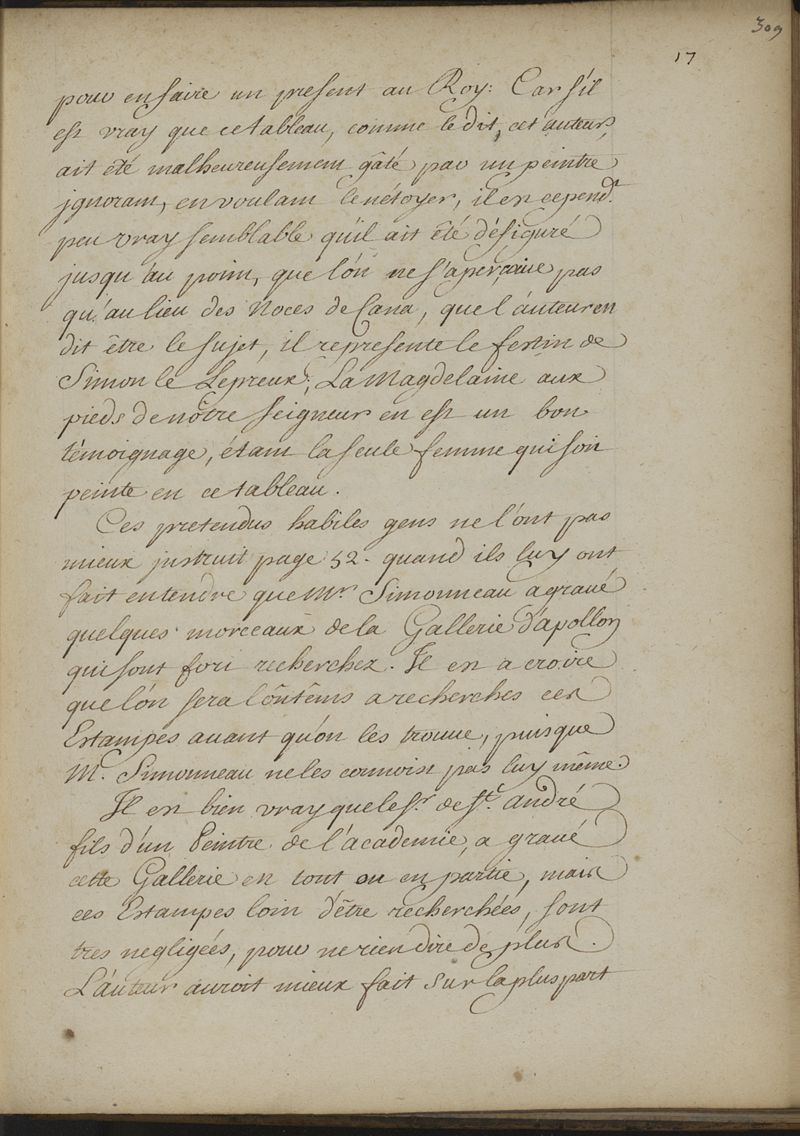 309
17
pour en faire un present au Roy: Car s'il
est vray que ce tableau, comme le dit, cet auteur,
ait été malheureusement gâté par un peintre
jgnorant, en voulant le nétoyer, il est cepend.t
peu vray semblable qu'il ait été désiguré
jusqu'au point, que l'on ne s'aperçoive pas
qu'au lieu des Noces de Cana, que l'auteur en
dit être le sujet, il represente le festin de
Simon le Lepreux; La Magdelaine aux
pieds de nôtre seigneur en est un bon
témoignage, étant la seule femme qui soit
peinte en ce tableau.
Ces pretendus habiles gens ne l'ont pas
mieux jnstruit page 52. quand ils luy ont
fait entendre que Mr. Simonneau a gravé
quelques morceaux de la Gallerie d'apollon
qui sont fort recherchez. Il est a croire
que l'on sera lontêms a recherches ces
Estampes avant qu'on les trouve, puisque
M. Simonneau ne les connoist pas luy même.
Il est bien vray que le Sr. de St. André
fils d'un Peintre de l'academie, a gravé
cette Gallerie en tout ou en partie, mais
ces Estampes loin d'être recherchées, sont
tres negligées, pour ne rien dire de plus.
L'auteur auroit mieux fait sur la plus part